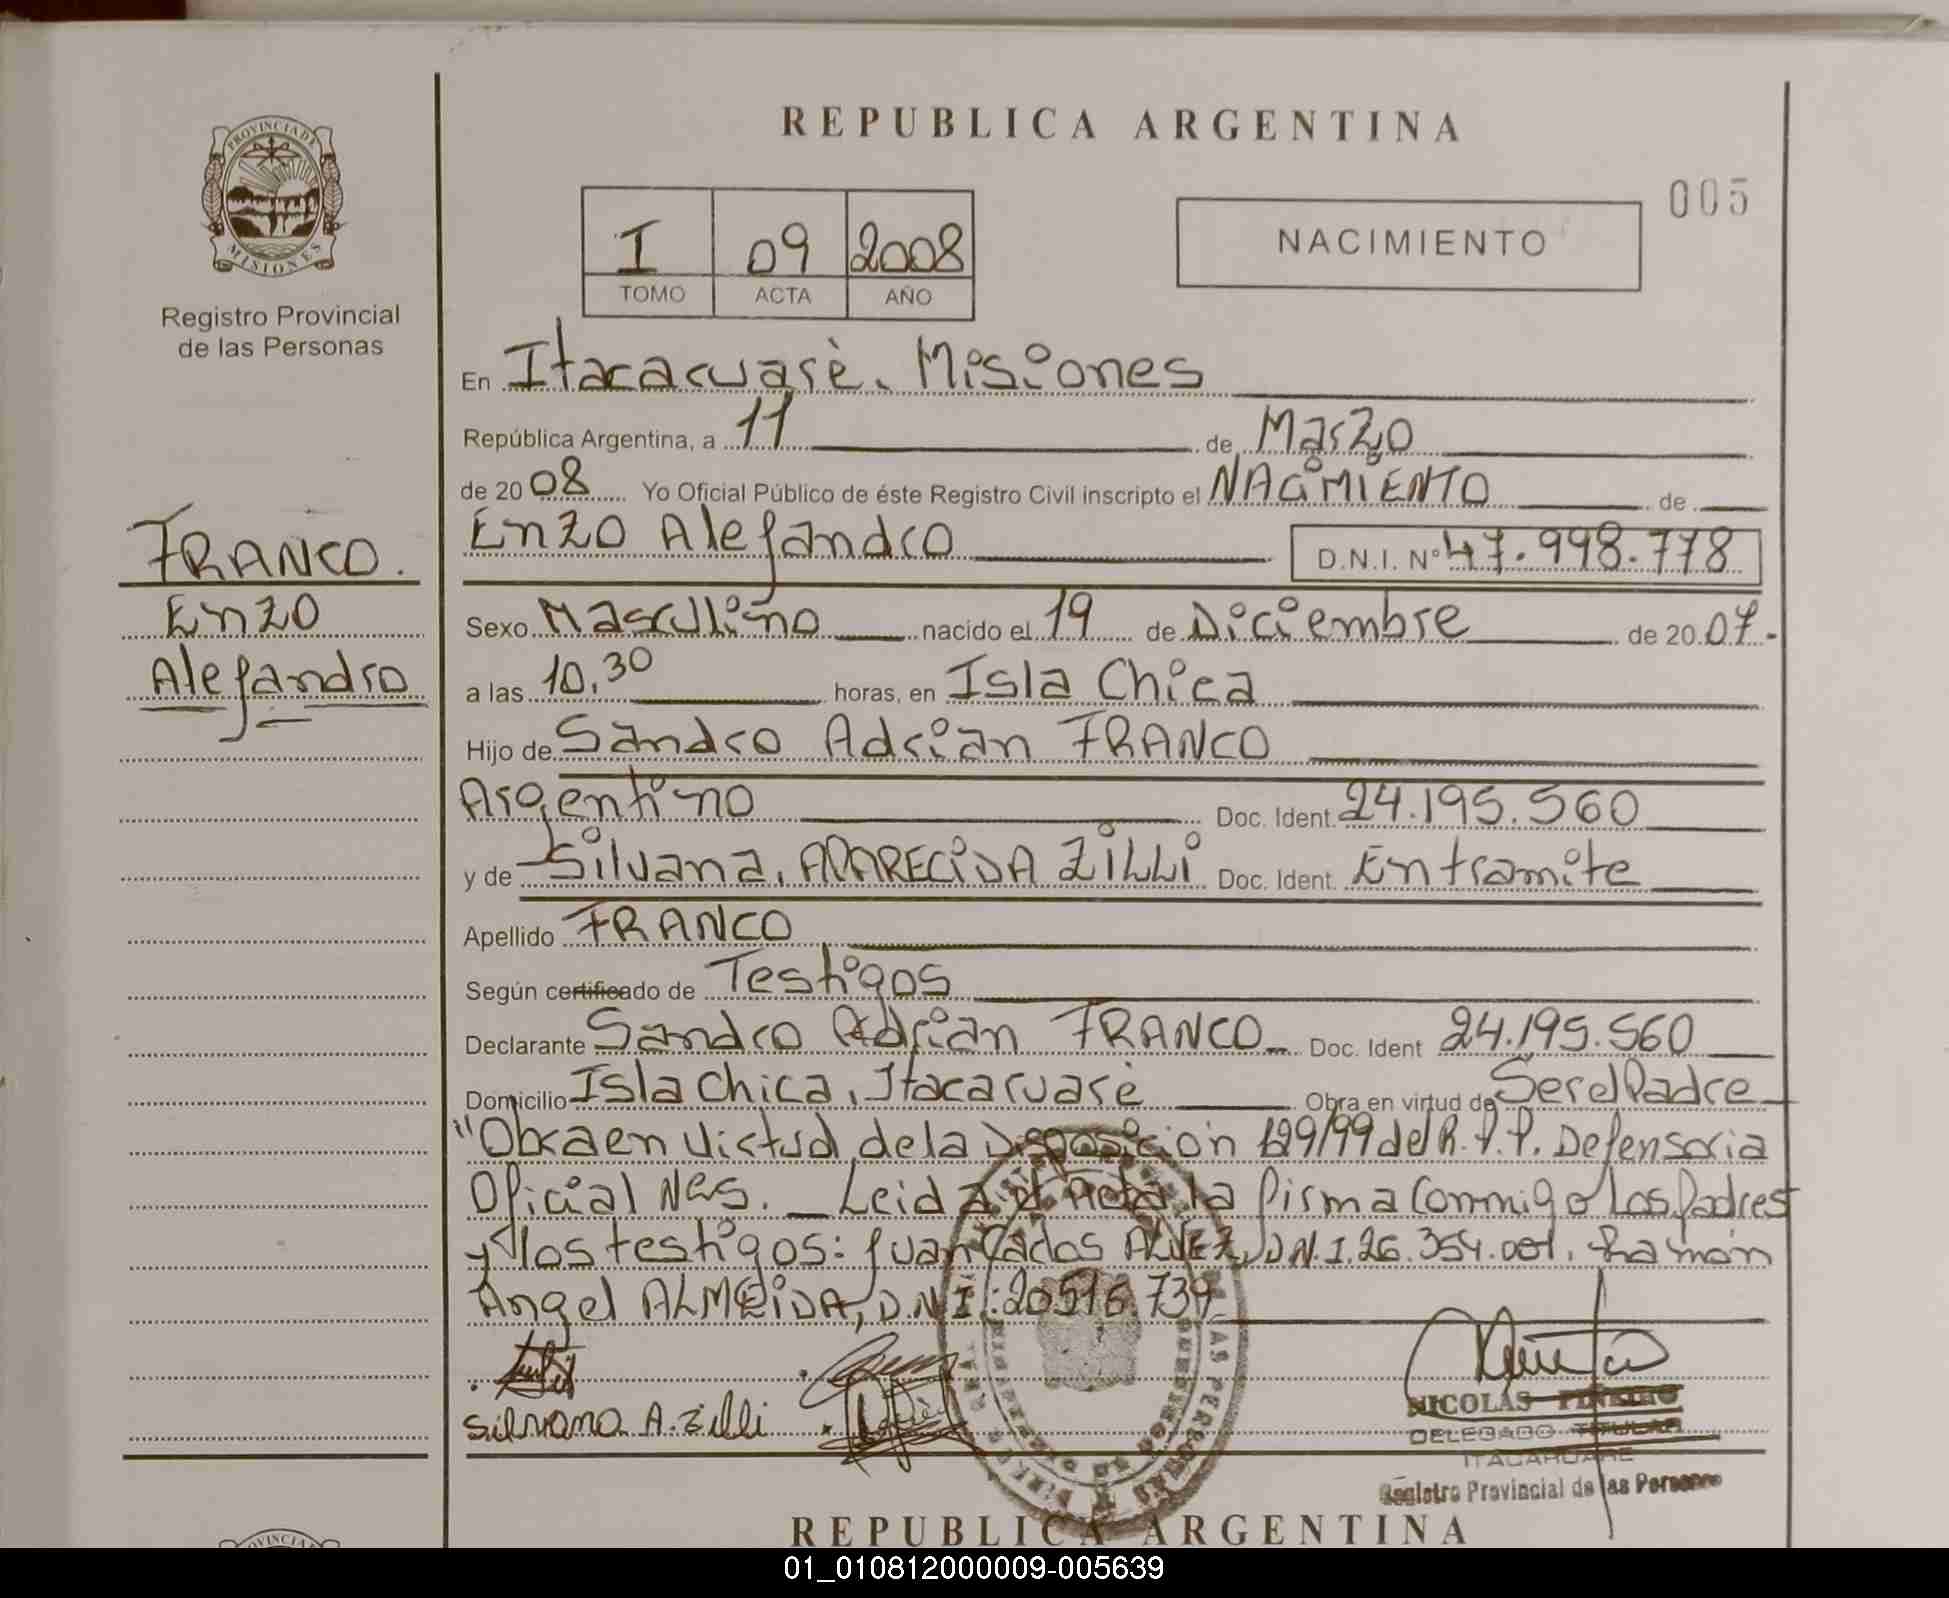 PROVINCIA DE
MISIONES
Registro Provincial
de las Personas
FRANCO.
Enzo
Alejandro
REPUBLICA ARGENTINA
005
I 09 2008
TOMO ACTA AÑO
NACIMIENTO
En Itacaruarè. Misiones
República Argentina, a 11 de Marzo
de 2008 Yo Oficial Público de éste Registro Civil inscripto el NACIMIENTO de
Enzo Alejandro D.N.I. Nº 47.998.778
Sexo Masculino nacido el 19 de Diciembre de 2007.
a las 10,30 horas, en Isla Chica
Hijo de Sandro Adrian FRANCO
Argentino Doc. Ident. 24.195.560
y de Silvana, APARECIDA ZILLI Doc. Ident. Entramite
Apellido FRANCO
Según certificado de Testigos
Declarante Sandro Adrian FRANCO Doc. Ident 24.195.560
Domicilio Isla Chica, Itacaruarè Obra en virtud de Ser el Padre
"Obra en virtud de la Disposición 199/99 del R.P.P. Defensoria
Oficial Nº5. _ Leida el Acta la firma Conmigo Los Padres
y los testigos: Juan Carlos ALVEZ, D.N.I. 26.354.001. Ramón
Angel ALMEIDA, D.N.I.: 20.516.739
Silvana A. Zilli
NICOLAS PIÑEIRO
DELEGADO TITULAR
ITACARUARE
Registro Provincial de las Personas
REPUBLICA ARGENTINA
01_010812000009-005639